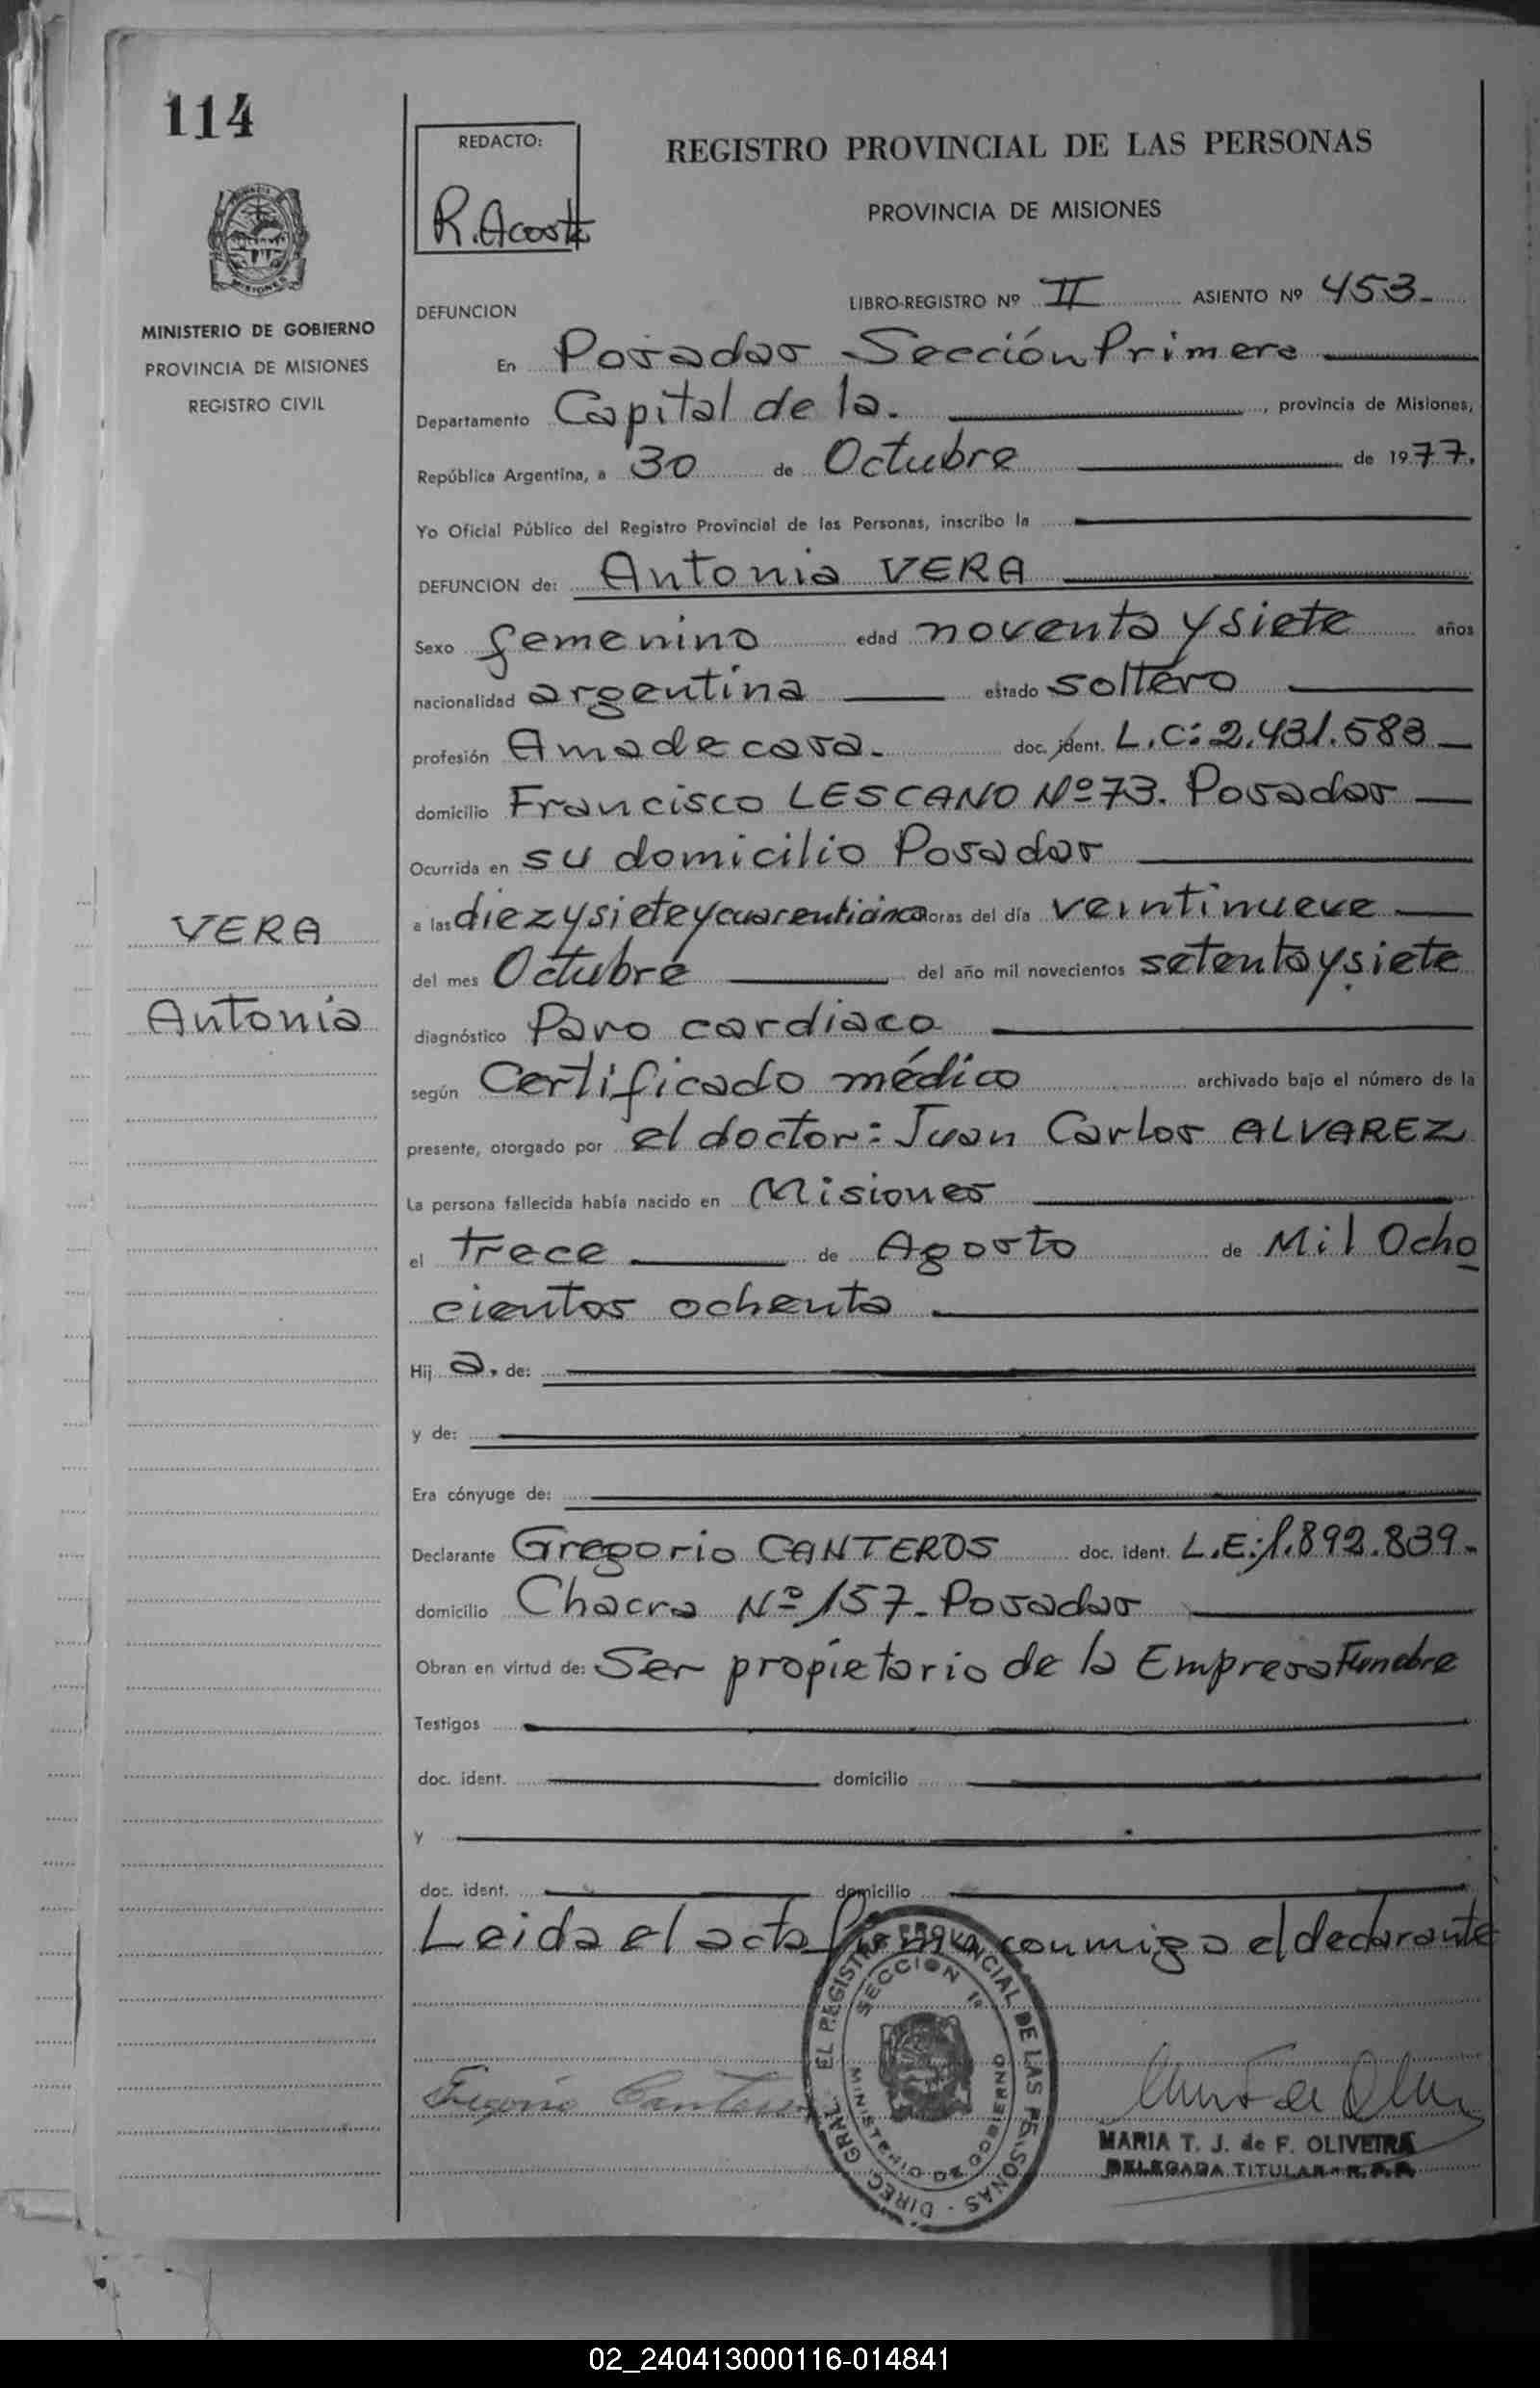 114
REDACTO:
R. Acosta
REGISTRO PROVINCIAL DE LAS PERSONAS
PROVINCIA DE MISIONES
MISIONES
MINISTERIO DE GOBIERNO
PROVINCIA DE MISIONES
REGISTRO CIVIL
DEFUNCION
LIBRO-REGISTRO Nº II ASIENTO Nº 453-
En Posadas Sección Primera
Departamento Capital de la. , provincia de Misiones,
República Argentina, a 30 de Octubre de 1977.
Yo Oficial Público del Registro Provincial de las Personas, inscribo la
DEFUNCION de: Antonia VERA
Sexo femenino edad noventa y siete años
nacionalidad argentina estado soltero
profesión Ama de casa. doc. ident. L.C: 2.431.583
domicilio Francisco LESCANO Nº 73. Posadas
Ocurrida en su domicilio Posadas
a las diez y siete y cuarenticinco horas del día veintinueve
del mes Octubre del año mil novecientos setenta y siete
diagnóstico Paro cardiaco
según Certificado médico archivado bajo el número de la
presente, otorgado por el doctor: Juan Carlos ALVAREZ
La persona fallecida había nacido en Misiones
el trece de Agosto de Mil Ocho
cientos ochenta
Hija. de:
y de:
Era cónyuge de:
Declarante Gregorio CANTEROS doc. ident. L.E: 1.892.839-
domicilio Chacra Nº 157- Posadas
Obran en virtud de: Ser propietario de la Empresa Funebre
Testigos
doc. ident. domicilio
y
doc. ident. domicilio
Leida el acta firma conmigo el declarante
VERA
Antonia
DIREC. GRAL. EL REGISTRO PROVINCIAL DE LAS PERSONAS
SECCION 1ª
MINISTERIO DE GOBIERNO
Gregorio Canteros
MARIA T. J. de F. OLIVEIRA
DELEGADA TITULAR - R.P.P.
02_240413000116-014841